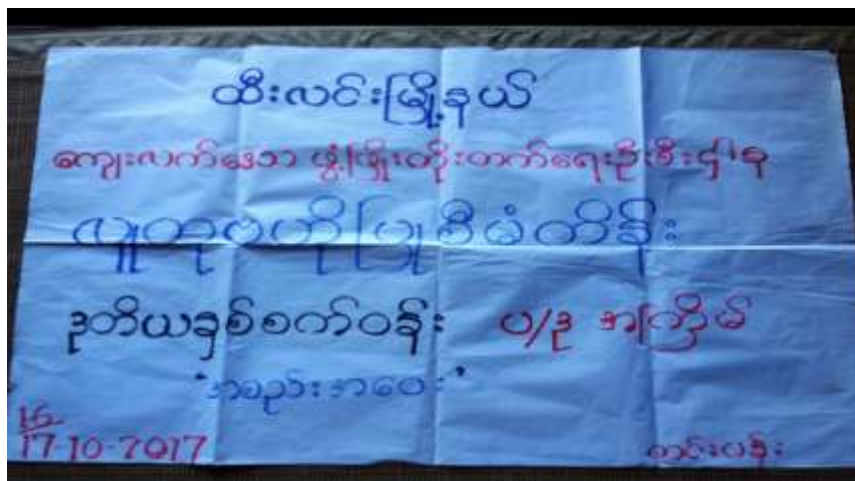 ထီးလင်းမြို့နယ်
ကျေးလက်ဒေသ ဖွံ့ဖြိုးတိုးတက်ရေးဦးစီးဌါန
လူထုဗဟိုပြုစီမံကိန်း
ဒုတိယနှစ်စက်ဝန်း ပ/ဒု အကြိမ်
"အစည်းအဝေး"
16
17-10-2017 တင်းပန်း